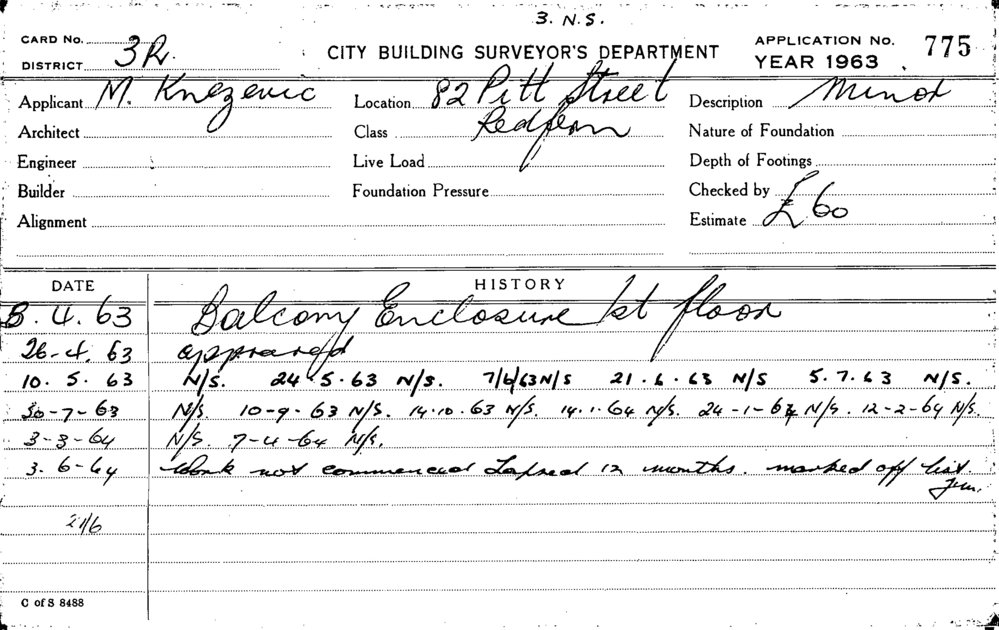 3. N.S.
CARD No. 3R. CITY BUILDING SURVEYOR'S DEPARTMENT APPLICATION No. 775
DISTRICT YEAR 1963
Applicant M. Knezevic Location 82 Pitt Street Description Minor
Architect Class Redfern Nature of Foundation
Engineer Live Load Depth of Footings
Builder Foundation Pressure Checked by
Alignment Estimate £60
DATE HISTORY
8.4.63 Balcony Enclosure 1st floor
26-4.63 approved
10.5.63 N/S. 24.5.63 N/S. 7/6/63 N/S 21.6.63 N/S 5.7.63 N/S.
30-7-63 N/S. 10-9-63 N/S. 14.10.63 N/S. 14.1.64 N/S. 24-1-64 N/S. 12-2-64 N/S.
3-3-64 N/S. 7-4-64 N/S.
3.6-64 Work not commenced Lapsed 12 months. marked off list.
21/6
C of S 8488